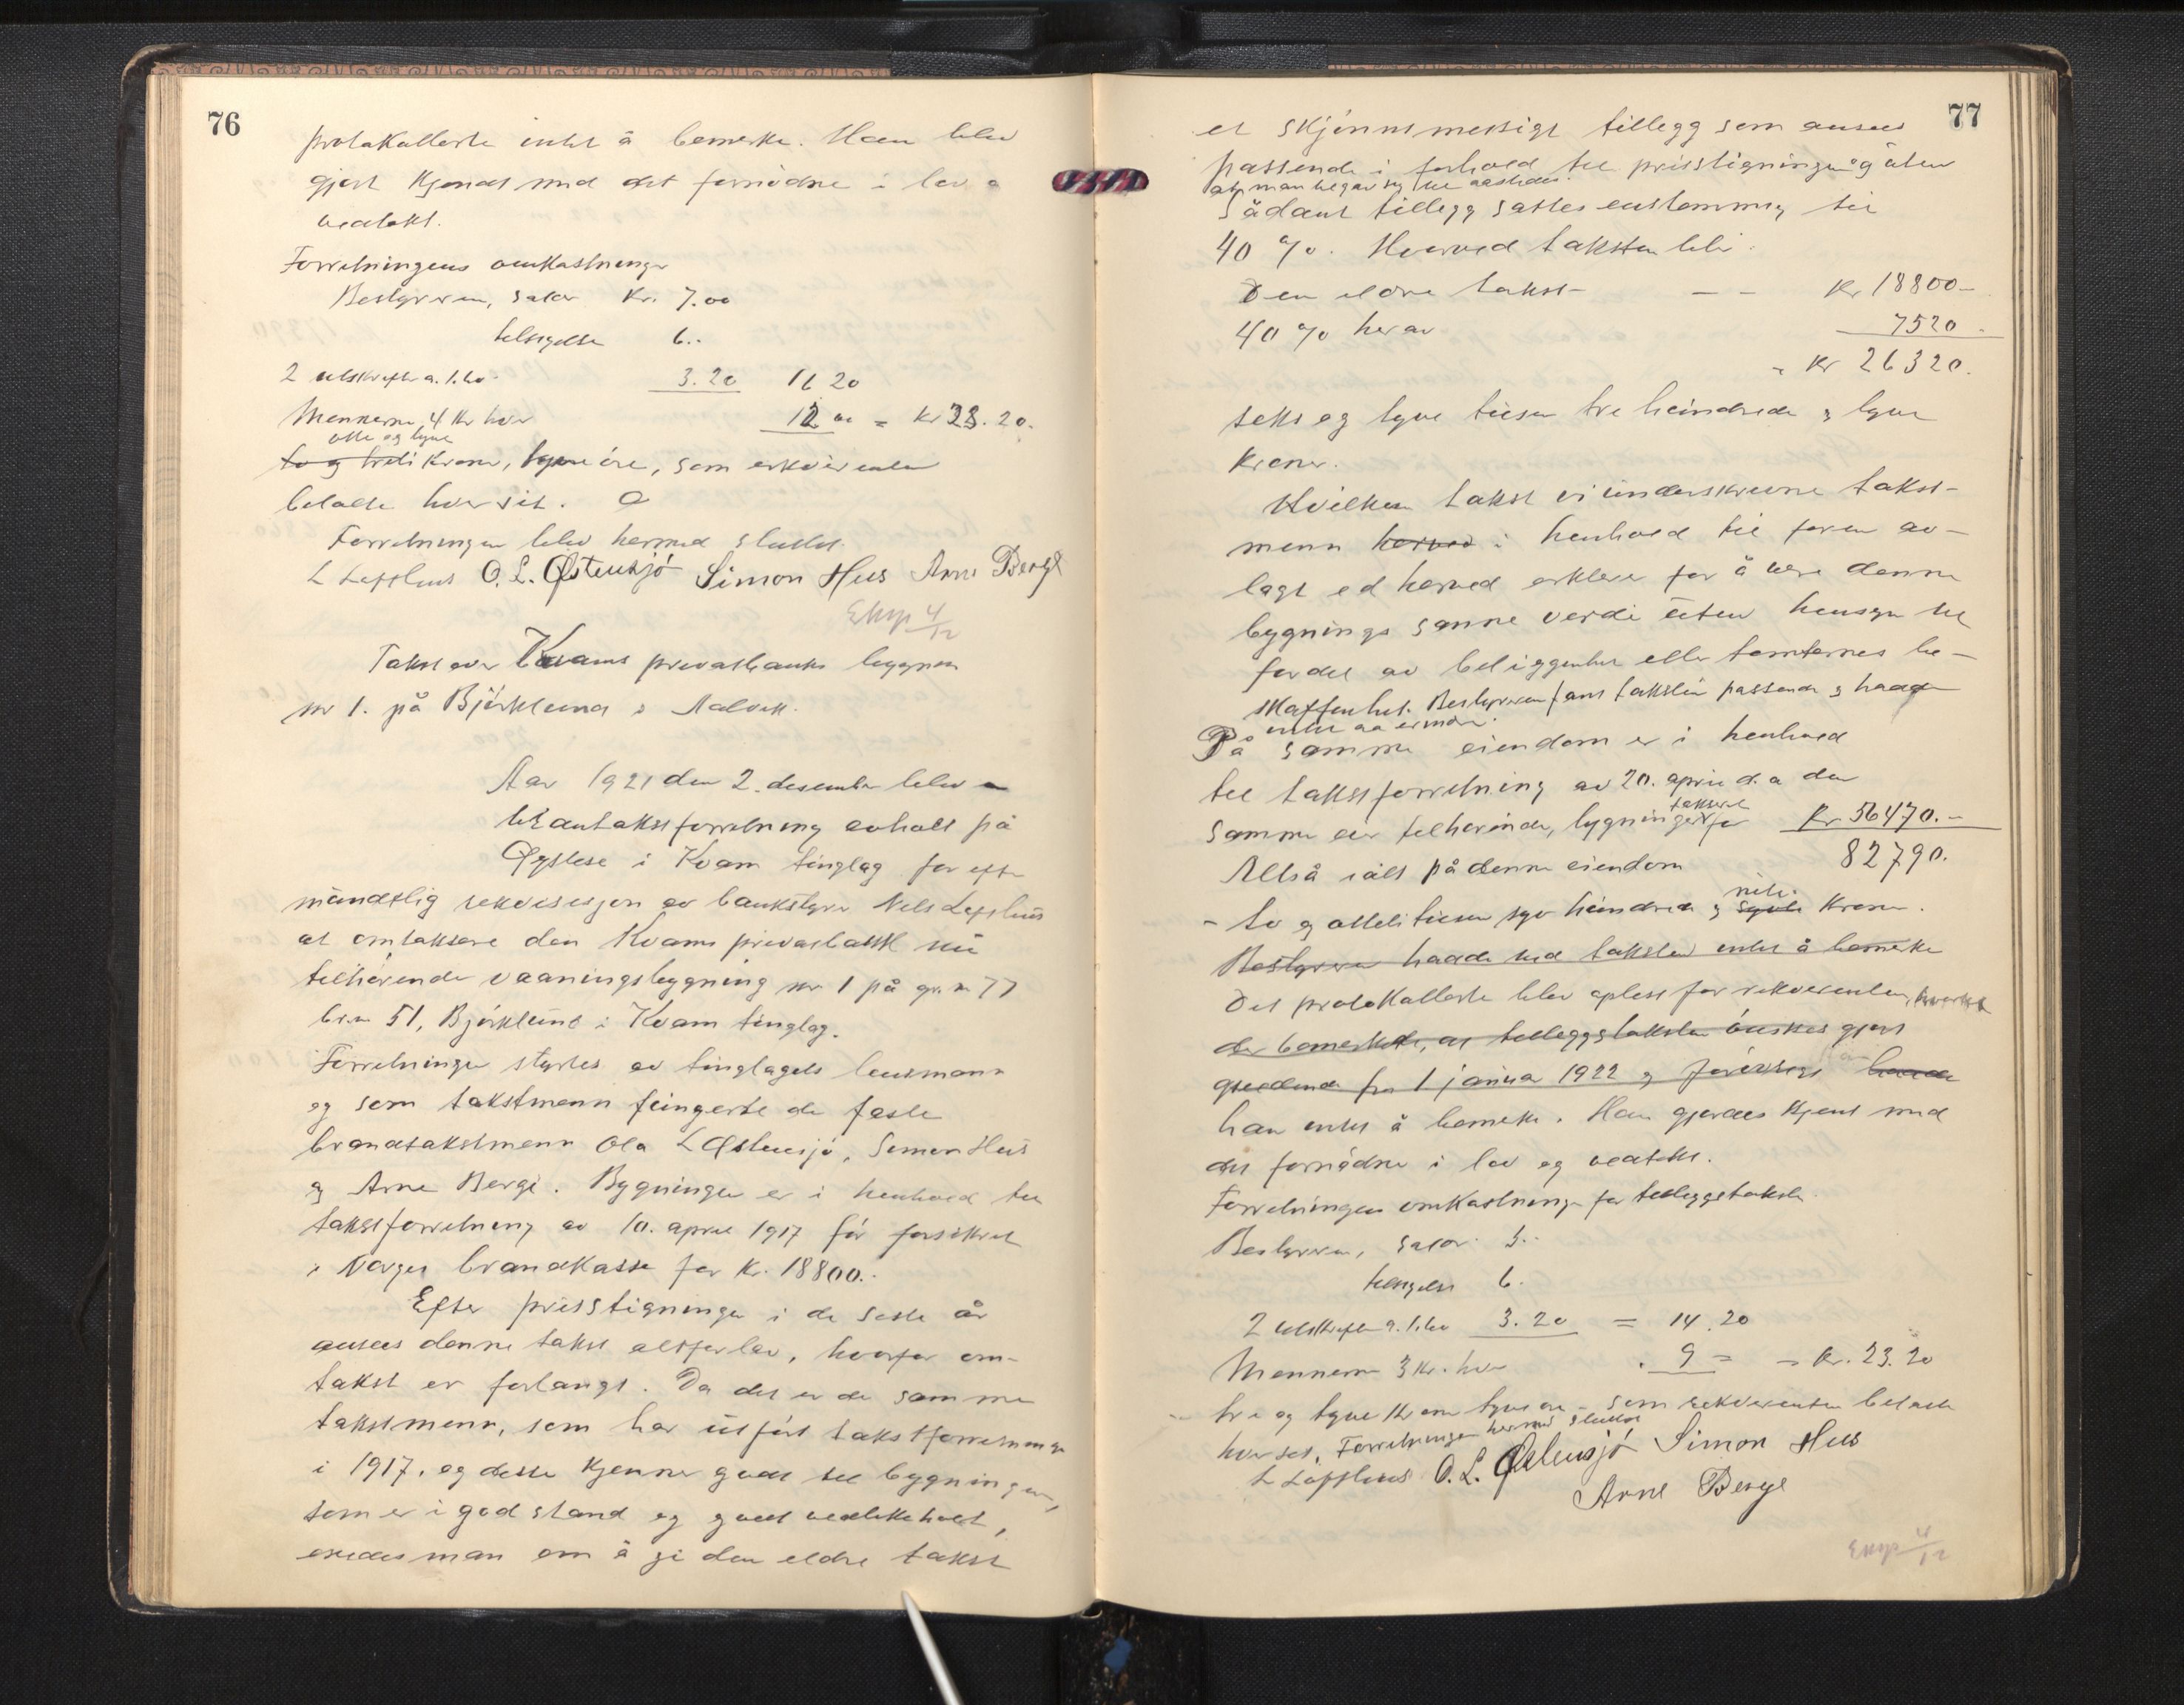 76
protokollerte intet å bemerke. Han blev
gjort kjendt med det fornödne i lov o
vedtekt.
Forretningens omkostninger
Bestyreren, salær Kr. 7.00
tilsigelse 6..
2 utskrifter a. 1.60 3.20 16 20
Mennerne 4 Kr hver 12 00 = Kr 28.20.
otte og tyve
to og treti Kroner, tyve öre, som rekvirenten
betalte hver sit.
Forretningen blev hermed sluttet.
L Lofthus O. L. Østensjö Simon Hus Arne Berge
Eksp 4/12
Takst over Kvams privatbanks bygning
nr 1. på Björklund i Aalvik.
Aar 1921 den 2. desember blev
brantakstforretning avholt på
Øystese i Kvam tinglag for efter
mundtlig rekvisisjon av bankstyrer Nils Lofthus
at omtaksere den Kvams privatbank nu
tilhörende vaaningsbygning nr 1 på gr.n 77
br.n 51, Björklund i Kvam tinglag.
Forretningen styrtes av tinglagets lensmann
og som takstmenn fungerte de faste
brandtakstmenn Ola L Østensjö, Simon Hus
og Arne Berge. Bygningen er i henhold til
takstforretning av 10. april 1917 för forsikret
i Norges brandkasse for Kr. 18800..
Efter prisstigningen i de siste år
ansees denne takst altfor lav, hvorfor om-
takst er forlangt. Da det er de samme
takstmenn, som har utfört takstforretningen
i 1917, og disse kjenner godt til bygningen,
som er i god stand og godt vedlikeholt,
enedes man om å gi den eldre takst
77
et skjönnsmessigt tillegg som ansees
passende i forhold til prisstigningen og uten
at man begav sig til aastedet.
Sådant tillegg sattes enstemmig til
40 %. Hvorved taksten blir:
Den eldre takst — — Kr 18800-
40 % herav 7520
Kr 26320.
seks og tyve tusen tre hundrede og tyve
kroner.
Hvilken takst vi underskrevne takst-
menn herved i henhold til foran av-
lagt ed herved erklerer for å vere denne
bygnings sanne verdi uten hensyn til
fordel av beliggenhet eller tomternes be-
skaffenhet. Bestyreren fant taksten passende og hadde
intet aa erindre.
På samme eiendom er i henhold
til takstforretning av 20. april d.a den
samme eier tilhörende, bygninger taksert for Kr 56470.-
Altså ialt på denne eiendom 82790.
- to og otteti tusen syv hundrede og syvti niti Kroner.
Bestyreren hadde ved taksten intet å bemerke
Det protokollerte blev oplest for rekvirenten, hvortil
der bemerkedes, at tilleggstaksten önskes gjort
gjeldende fra 1 januar 1922 og forövrigt hadde
han intet å bemerke. Han gjordes kjent med
det fornödne i lov og vedtekt.
Forretningens omkostninger for tilleggstakst
Bestyreren, salær 5..
tilsigelse 6.
2 utskrifter a. 1.60 3.20 = 14.20
Mennerne 3 Kr. hver 9 = = Kr. 23.20
tre og tyve Kroner tyve öre - som rekvirenten betalte
hver sit. Forretningen hermed sluttet
L Lofthus O. L. Østensjö Simon Hus
Arne Berge
Eksp 4/12